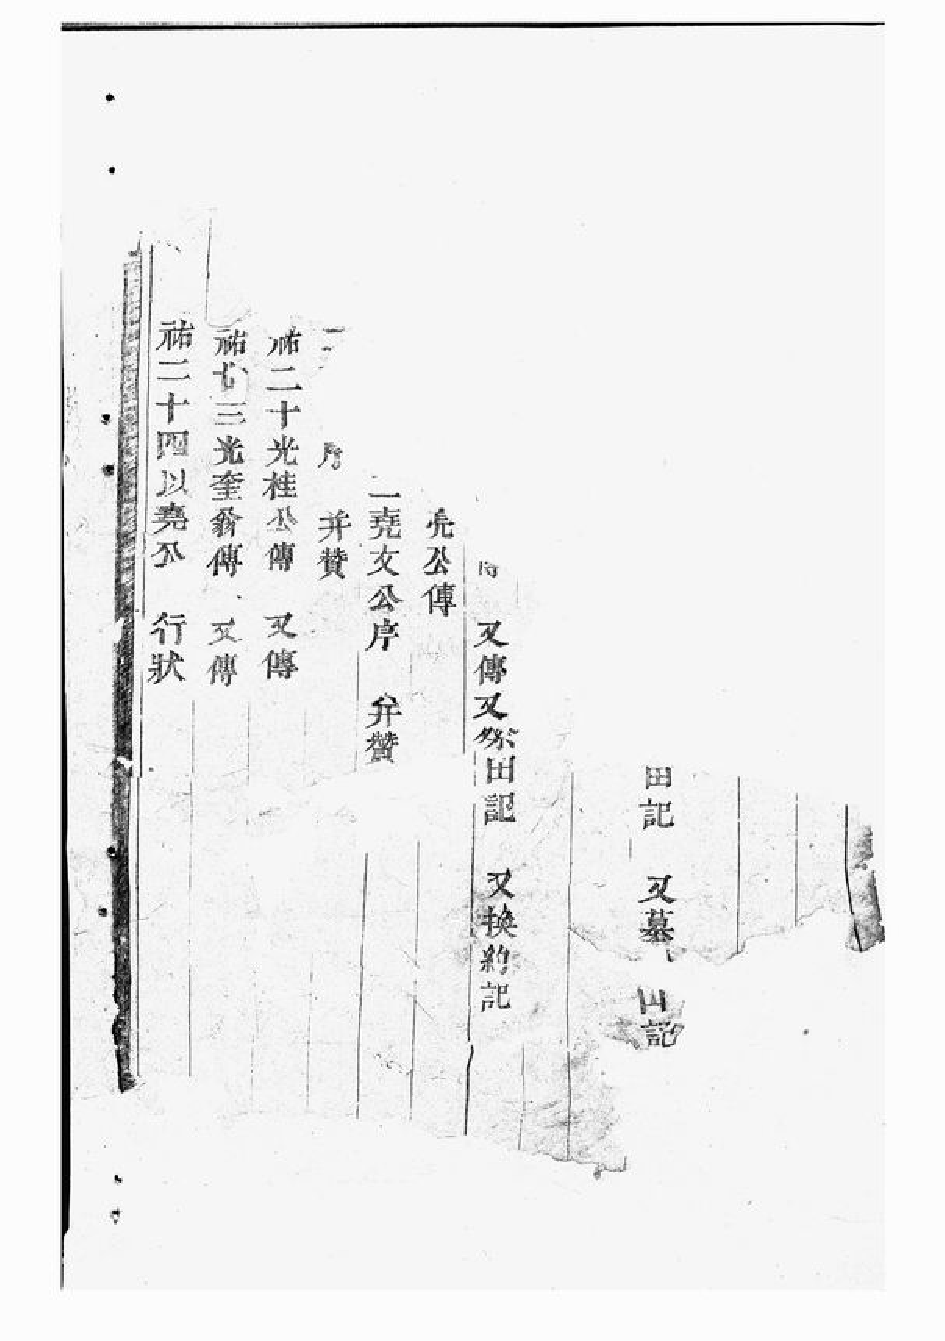 田記 又墓 山記
又傳又祭田記 又換約記
公傳
堯文公序 并贊
序 并贊
祐二十光桂公傳 又傳
祐七三光奎翁傳 又傳
祐二十四以堯公 行狀